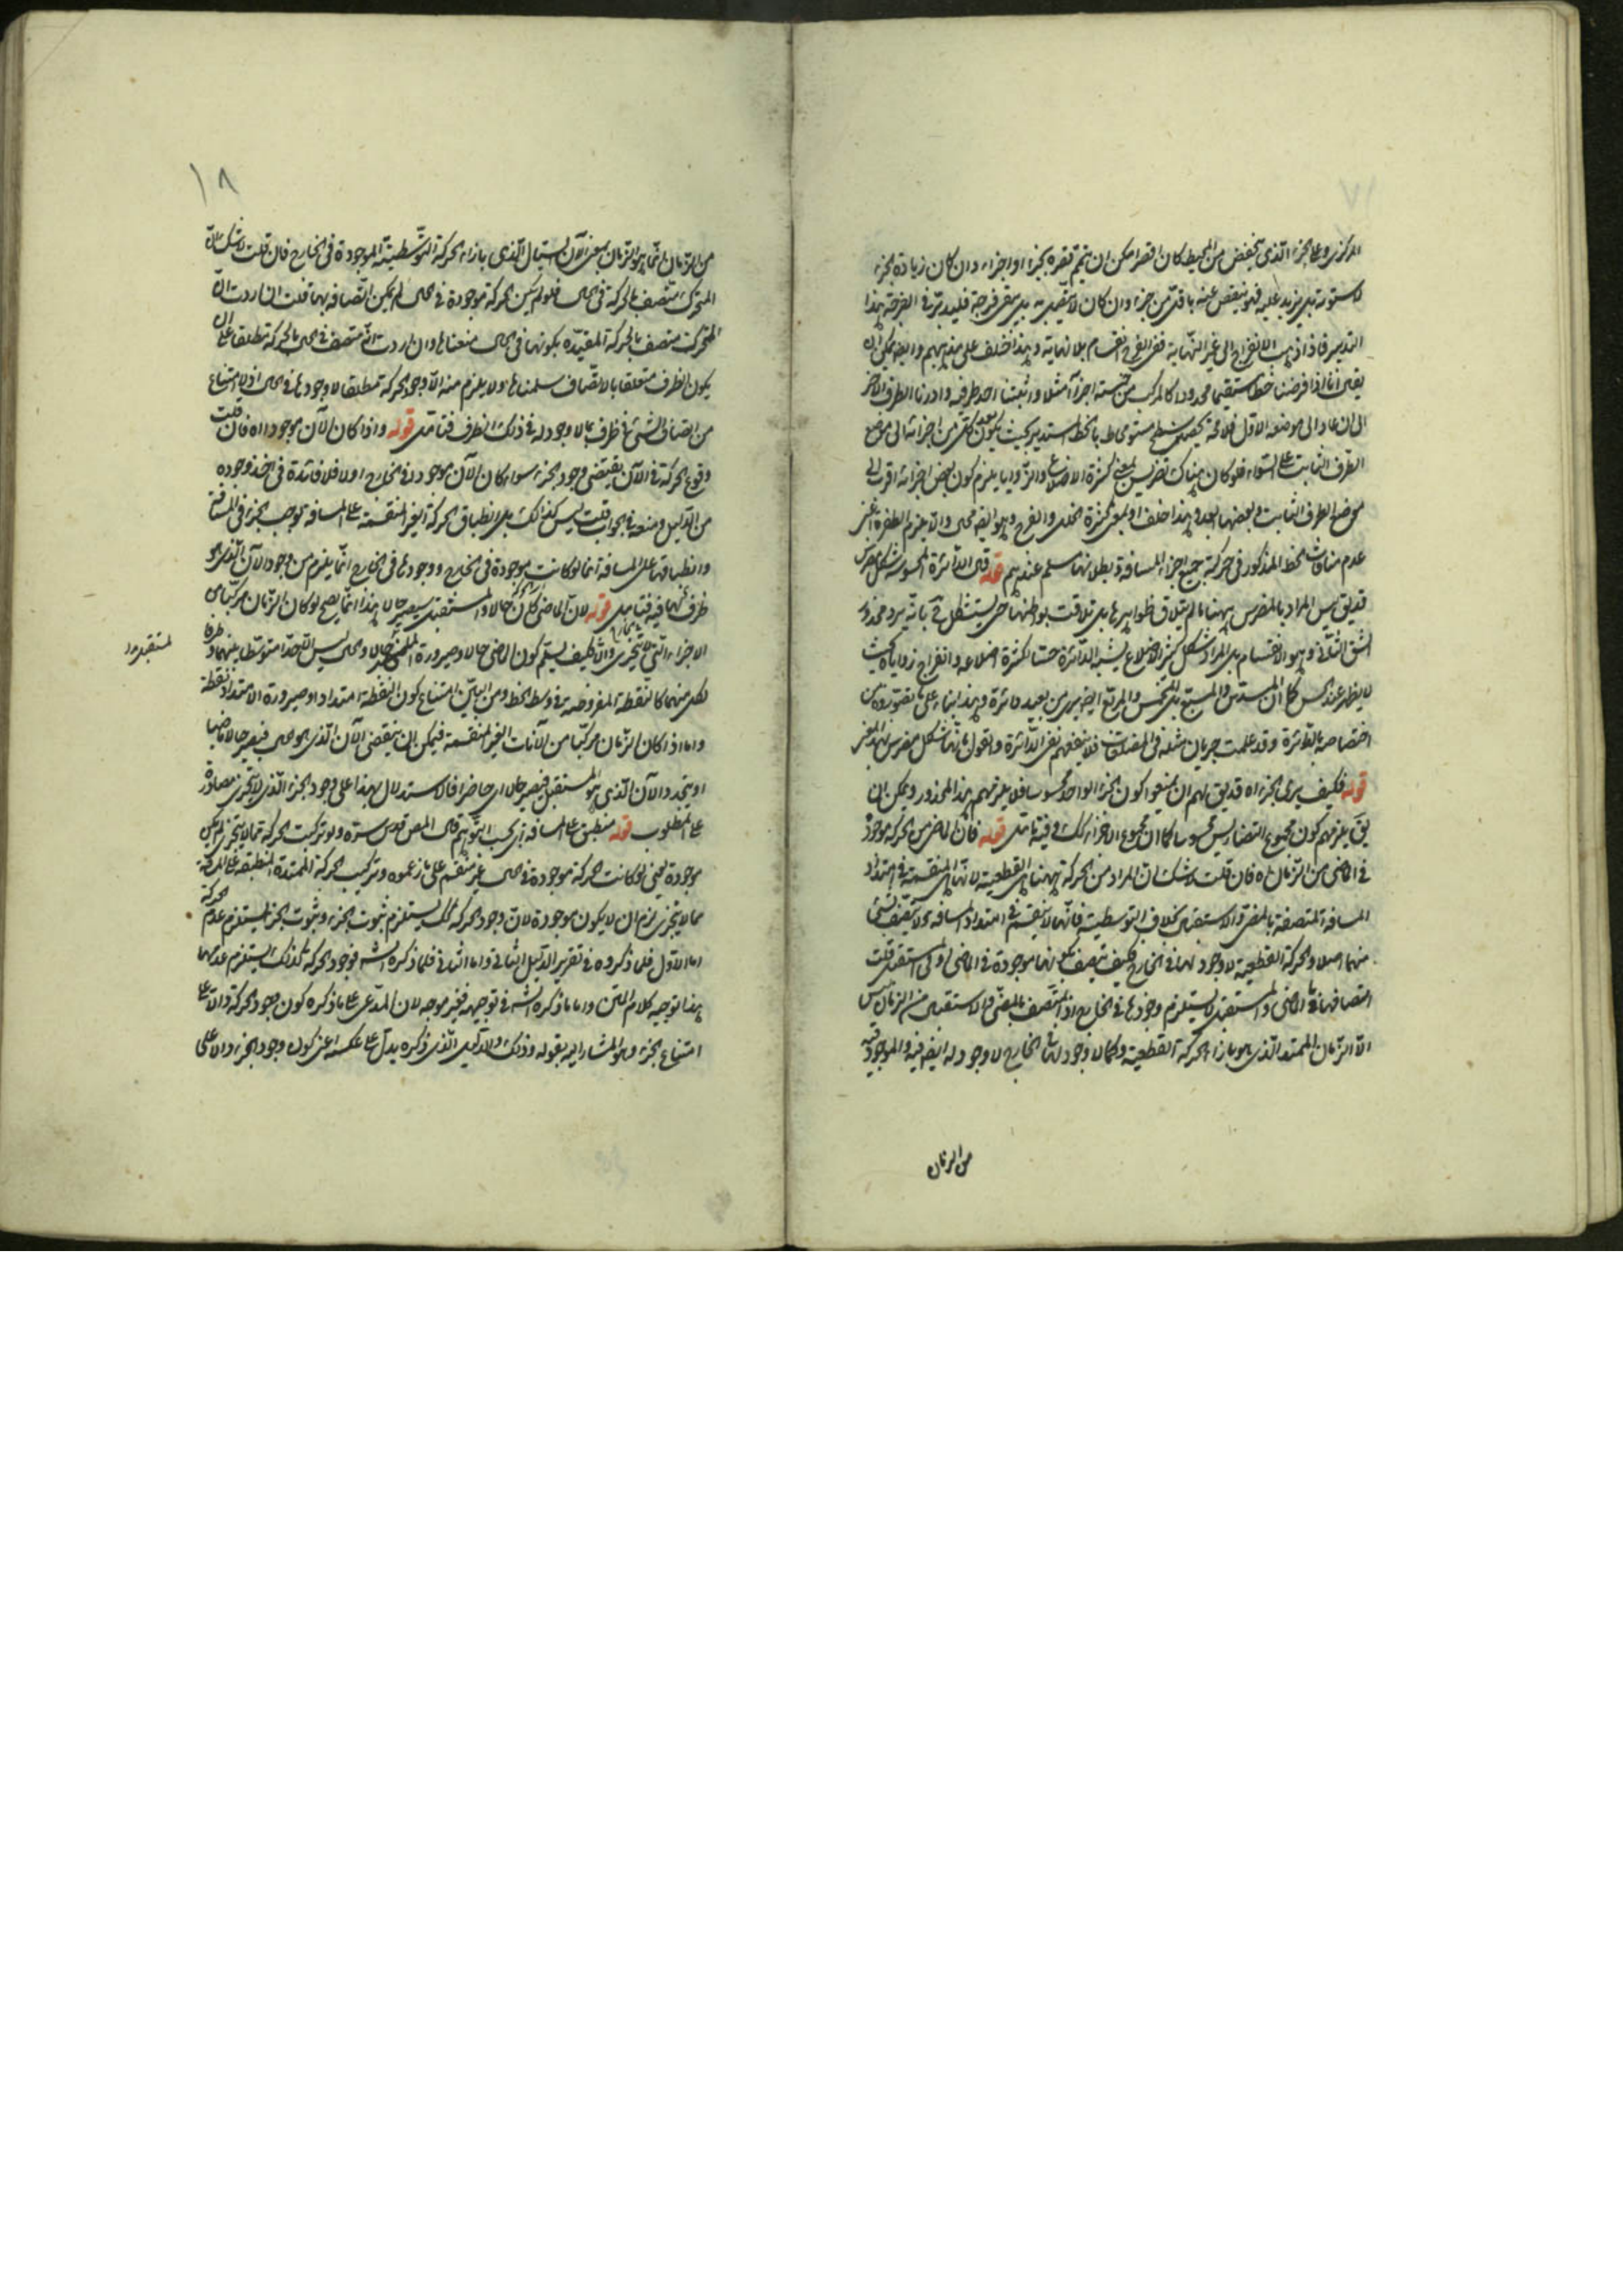 المركزى وعلى الجزء الذى ينخفض من المحيط كان اقصر امكن ان يتمم قصره بجزء او اجزاء وان كان زيادة الجزء
لا يستوية بل يزيد عليه فهو ينقص عنه باقل من جزء وان كان لا يتصل به بل يبقى فرجة فليدبر فى الفرجة هذا
التدبير فاذا ذهب الانفراج الى غير النهاية ففى الفرج انقسام بلا نهاية وهذا خلف على مذهبهم وايضا يمكن ان
يقال انا اذا فرضنا خطا مستقيما محدودا كالمركب من خمسة اجزاء مثلا واثبتنا احد طرفيه وادرنا الطرف الاخر
الى ان عاد الى موضعه الاول فلا محة يحصل سطح مستو محاط بالخط المستدير بحيث يكون بعد كل من اجزائه الى موضع
الطرف الثابت على السواء فلو كان هناك تضريس بمعنى كثرة الاضلاع والزوايا يلزم كون بعض اجزائه اقرب الى
موضع الطرف الثابت وبعضها ابعد وهذا خلف او بمعنى كثرة الخلل والفرج وهو ايضا محال والا يلزم الطفرة اعنى
عدم مماسة الخط المذكور فى حركته جميع اجزاء المسافة وبطلانها مسلم عندهم قوله قال الدائرة المحسوسة شكل مضرس
قد يقال ليس المراد بالمضرس ههنا ما لم يتلاق ظواهرها بل تلاقت بواطنها حتى يستشكل فى بانه يرد محذور
الشق الثانى وهو الانقسام بل المراد شكل كثير الاضلاع يشبه الدائرة حسا لكثرة اضلاعه وانفراج زواياه بحيث
لا يظهر عند الحس كما ان المسدس والمسبع بل المخمس والمربع ايضا يرى من بعيد دائرة وهذا بناء على ما تصوروه من
اختصاصه بالدائرة وقد علمت جريان مثله فى المضلعات فلا ينفعهم نفى الدائرة والقول بانها شكل مضرس بهذا المعنى
قوله فكيف يرى الجزء اه قد يقال لهم ان يمنعوا كون الجزء الواحد محسوسا فلا يلزمهم هذا المحذور ويمكن ان
يقال يلزمهم كون مجموع التضاريس محسوسا كما ان مجموع الاجزاء كذلك وفيه تامل قوله فان الماضى من الحركة موجود
فى الماضى من الزمان اه فان قلت لا شك ان المراد من الحركة ههنا هى القطعية لانها هى المنقسمة فى امتداد
المسافة المتصفة بالمضى والاستقبال بخلاف التوسطية فانها لا تنقسم فى امتداد المسافة ولا يتصف بشئ
منهما اصلا والحركة القطعية لا وجود لها فى الخارج فكيف يتصف بكونها موجودة فى الماضى او فى المستقبل قلت
اتصافها بالماضى والمستقبل لا يستلزم وجودها فى الخارج اذ المتصف بالمضى والاستقبال من الزمان ليس
الا الزمان الممتد الذى هو بازاء الحركة القطعية وكما لا وجود لها فى الخارج لا وجود له ايضا فيه والموجود فيه
من الزمان
١٨
من الزمان انما هو الزمان بمعنى الآن السيال الذى بازاء الحركة التوسطية الموجودة فى الخارج فان قلت لا شك ان
المتحرك متصف بالحركة فى الحال فلو لم يكن الحركة موجودة فى الحال لم يمكن اتصافه بها قلت ان اردت ان
المتحرك متصف بالحركة المقيدة بكونها فى الحال منعناه وان اردت انه متصف فى الحال بالحركة مطلقا على ان
يكون الظرف متعلقا بالاتصاف سلمناه ولا يلزم منه الا وجود الحركة مطلقا لا وجودها فى الحال اذ لا امتناع
من اتصاف الشئ فى ظرف بما لا وجود له فى ذلك الظرف فتامل قوله واذا كان الآن موجودا اه فان قلت
وقوع الحركة فى الآن يقتضى وجود الجزء سواء كان الآن موجودا فى الخارج او لا فلا فائدة فى اخذ وجوده
من الدليل ومنعه فى الجواب قلت ليس كذلك بل انطباق الحركة الغير المنقسمة على المسافة توجب الجزء فى المسافة
وانطباقها على المسافة انما لو كانت موجودة فى الخارج ووجودها فى الخارج انما يلزم من وجود الآن الذى هو
ظرف لها فيه فتامل قوله لان الماضى كان حالا والمستقبل سيصير حالا هذا انما يصح لو كان الزمان مركبا من
الاجزاء التى لا تتجزى والا فكيف يسلم كون الماضى حالا وصيرورة المستقبل حالا والحال ليس الا حدا متوسطا بينهما وطرفا
لكل منهما كالنقطة المفروضة فى وسط الخط ومن البين امتناع كون النقطة امتدادا وصيرورة الامتداد نقطة
واما اذا كان الزمان مركبا من الآنات الغير المنقسمة فيمكن ان ينقضى الآن الذى هو الحال فيصير حالا ماضيا
او يتجدد الآن الذى هو المستقبل فيصير حالا اى حاضرا فالاستدلال بهذا على وجود الجزء الذى لا يتجزى مصادرة
على المطلوب قوله منطبق على المسافة اى بحسب التوهم قال المص قدس سره ولو تركبت الحركة مما لا يتجزى لم يكن
موجودة يعنى لو كانت الحركة موجودة فى الحال غير منقسم على ما زعموه وتركيب الحركة الممتدة المنطبقة على المسافة
مما لا يتجزى لزم ان لا يكون موجودة لان وجود الحركة كذلك يستلزم ثبوت الجزء وثبوت الجزء يستلزم عدم الحركة
اما الاول فلما ذكروه فى تقرير الدليل الثانى واما الثانى فلما ذكره الشه فوجود الحركة كذلك يستلزم عدمها
هذا توجيه كلام المتن واما ما ذكره الشه فى توجيهه فغير موجه لان المدعى على ما ذكره كون وجود الحركة دالا على
امتناع الجزء وهو المشار اليه بقوله وذلك والدليل الذى ذكره يدل على عكسه اعنى كون وجود الجزء دالا على